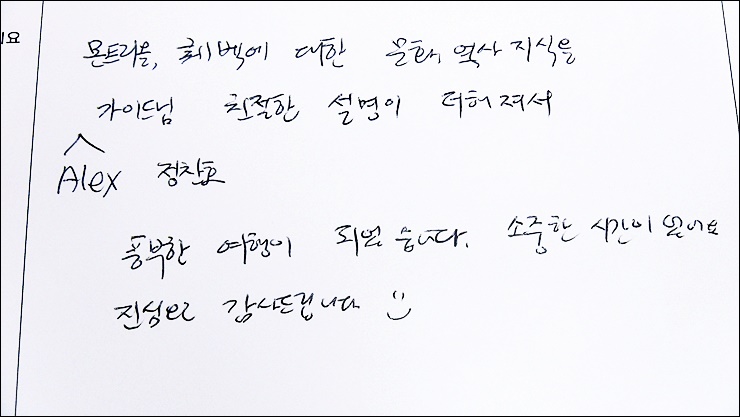 요
몬트리올, 퀘벡에 대한 문화, 역사 지식을
가이드님 친절한 설명이 더해져서
Alex 정찬호
풍부한 여행이 되었습니다. 소중한 시간이었어요
진심으로 감사드립니다 :)